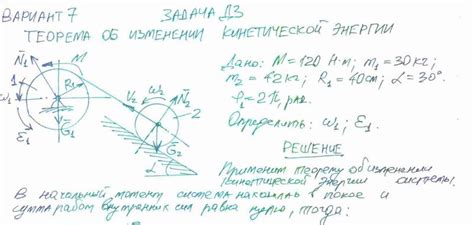 ВАРИАНТ 7 ЗАДАЧА Д3
ТЕОРЕМА ОБ ИЗМЕНЕНИИ КИНЕТИЧЕСКОЙ ЭНЕРГИИ
N̄₁ M
1 R₁
ω₁ ω₂ N̄₂
V₂ 2
ε₁ Ḡ₁ Ḡ₂
α
Дано: M=120 Н·м; m₁=30кг;
m₂=42кг; R₁=40см; α=30°.
φ₁=2π, рад.
Определить: ω₁; ε₁.
РЕШЕНИЕ
Применим теорему об изменении
кинетической энергии системы.
В начальный момент система находилась в покое и
сумма работ внутренних сил равна нулю, тогда: